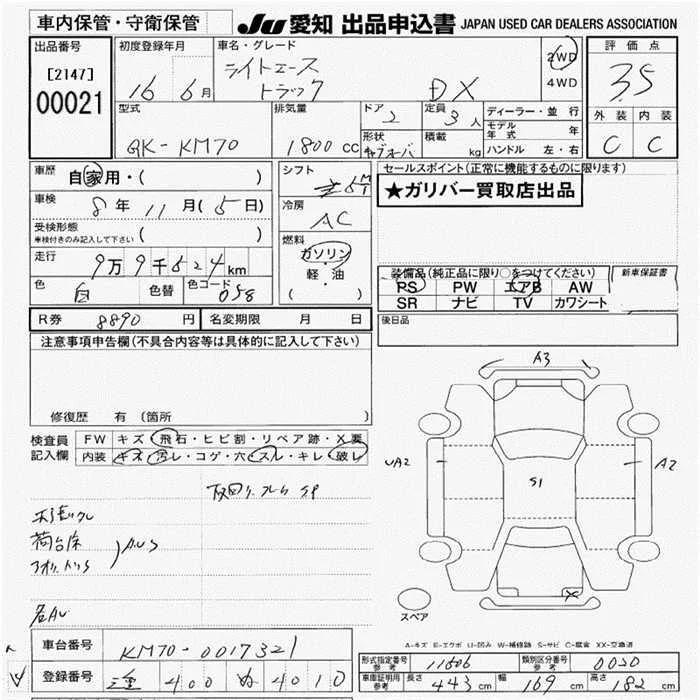 車内保管・守衛保管
JU 愛知 出品申込書 JAPAN USED CAR DEALERS ASSOCIATION
出品番号 初度登録年月 車名・グレード 評価点
[2147]
00021
16 6月
ライトエース
トラック DX
2WD
4WD
3.5
外装 内装
C C
型式 排気量 ドア 定員 ディーラー・並行
GK-KM70 1800cc 2 3人
形状 積載 kg モデル年式 年
キャブオーバ ハンドル 左・右
車歴 自家用・( )
車検 8年 11月(5日)
受検形態
車検付きのみ記入して下さい ( )
走行 9万9千524km
色 白 色替 色コード 058
シフト
5MT
冷房
AC
燃料
ガソリン
・
軽・油
( )
セールスポイント(正常に機能するものに限ります)
★ガリバー買取店出品
装備品(純正品に限り○をつけてください) 新車保証書
PS PW エアB AW
SR ナビ TV カワシート
R券 8890円 名変期限 月 日
後日品
注意事項申告欄(不具合内容等は具体的に記入して下さい)
修復歴 有 (箇所 )
検査員 FW キズ・飛石・ヒビ割・リペア跡・X要
記入欄 内装 キズ・汚レ・コゲ・穴・スレ・キレ・破レ
荷台床
A3
UA2
A2
S1
X
スペア
A-キズ E-エクボ U-凹み W-補修跡 S-サビ C-腐食 XX-交換済
車台番号 KM70-0017321
登録番号 400 4010
形式指定番号 参考 11606 類別区分番号 参考 0020
車庫証明用 参考 長さ 443cm 幅 169cm 高さ 182cm